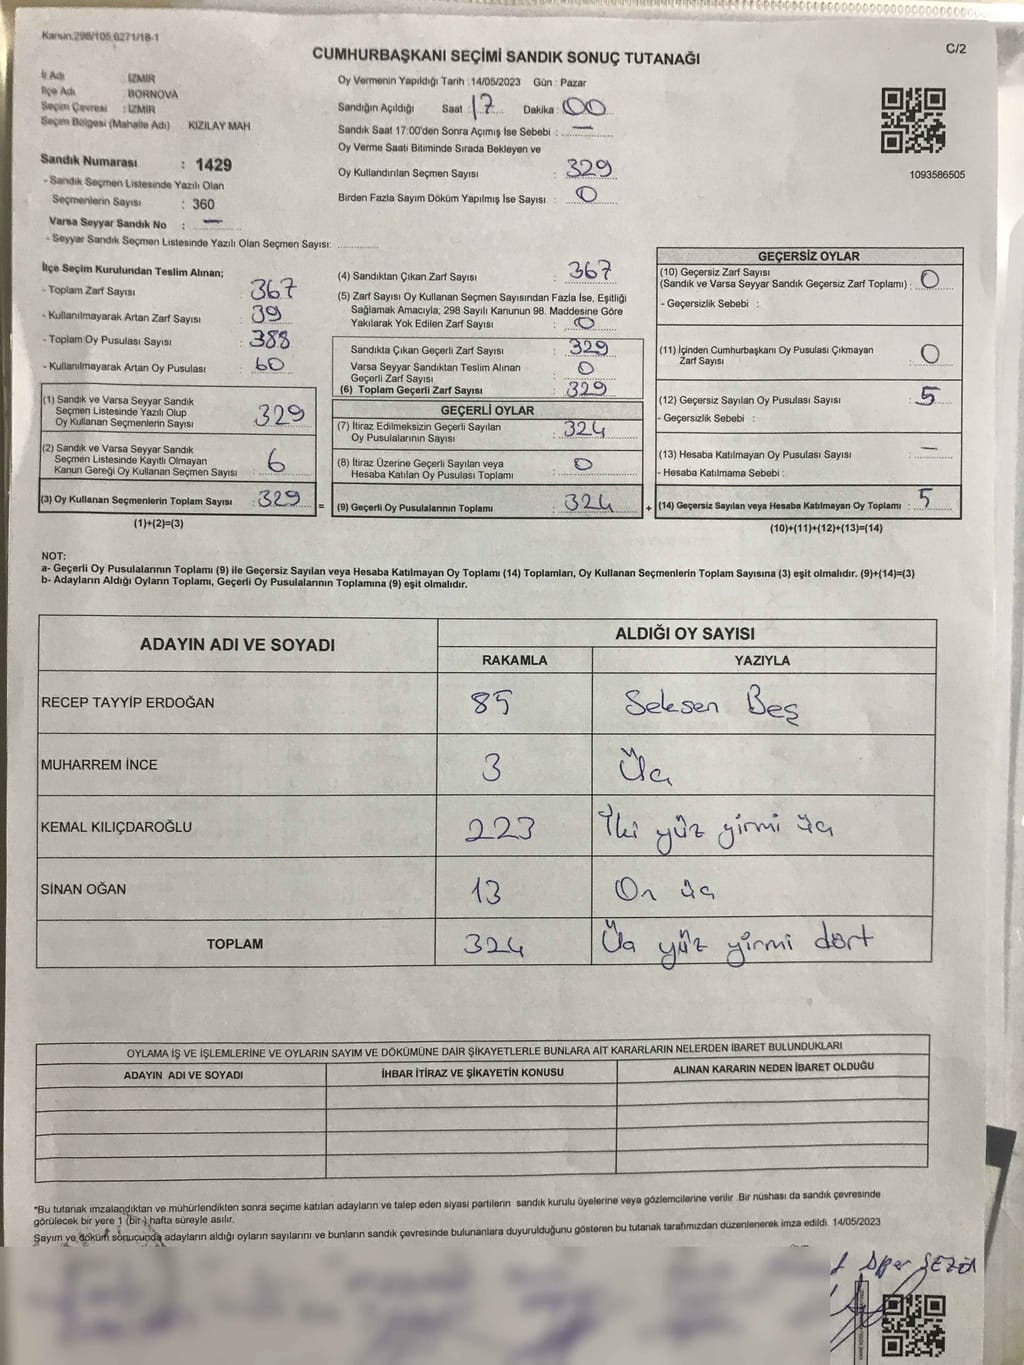 Kanun:298/105,6271/18-1
C/2
CUMHURBAŞKANI SEÇİMİ SANDIK SONUÇ TUTANAĞI
İl Adı İZMİR
İlçe Adı BORNOVA
Seçim Çevresi : İZMİR
Seçim Bölgesi (Mahalle Adı) KIZILAY MAH
Sandık Numarası : 1429
- Sandık Seçmen Listesinde Yazılı Olan
Seçmenlerin Sayısı : 360
Varsa Seyyar Sandık No : —
- Seyyar Sandık Seçmen Listesinde Yazılı Olan Seçmen Sayısı:
Oy Vermenin Yapıldığı Tarih :14/05/2023 Gün : Pazar
Sandığın Açıldığı Saat : 17 Dakika : 00
Sandık Saat 17:00'den Sonra Açımış İse Sebebi : —
Oy Verme Saati Bitiminde Sırada Bekleyen ve
Oy Kullandırılan Seçmen Sayısı : 329
Birden Fazla Sayım Döküm Yapılmış İse Sayısı : 0
1093586505
İlçe Seçim Kurulundan Teslim Alınan;
- Toplam Zarf Sayısı : 367
- Kullanılmayarak Artan Zarf Sayısı : 39
- Toplam Oy Pusulası Sayısı : 388
- Kullanılmayarak Artan Oy Pusulası : 60
(1) Sandık ve Varsa Seyyar Sandık
Seçmen Listesinde Yazılı Olup
Oy Kullanan Seçmenlerin Sayısı 329
(2) Sandık ve Varsa Seyyar Sandık
Seçmen Listesinde Kayıtlı Olmayan
Kanun Gereği Oy Kullanan Seçmen Sayısı : 6
(3) Oy Kullanan Seçmenlerin Toplam Sayısı : 329
(1)+(2)=(3)
(4) Sandıktan Çıkan Zarf Sayısı : 367
(5) Zarf Sayısı Oy Kullanan Seçmen Sayısından Fazla İse, Eşitliği
Sağlamak Amacıyla; 298 Sayılı Kanunun 98. Maddesine Göre
Yakılarak Yok Edilen Zarf Sayısı : 0
Sandıkta Çıkan Geçerli Zarf Sayısı : 329
Varsa Seyyar Sandıktan Teslim Alınan
Geçerli Zarf Sayısı : 0
(6) Toplam Geçerli Zarf Sayısı : 329
GEÇERLİ OYLAR
(7) İtiraz Edilmeksizin Geçerli Sayılan
Oy Pusulalarının Sayısı : 324
(8) İtiraz Üzerine Geçerli Sayılan veya
Hesaba Katılan Oy Pusulası Toplamı : 0
= (9) Geçerli Oy Pusulalarının Toplamı : 324
GEÇERSİZ OYLAR
(10) Geçersiz Zarf Sayısı
(Sandık ve Varsa Seyyar Sandık Geçersiz Zarf Toplamı) : 0
- Geçersizlik Sebebi :
(11) İçinden Cumhurbaşkanı Oy Pusulası Çıkmayan
Zarf Sayısı : 0
(12) Geçersiz Sayılan Oy Pusulası Sayısı : 5
- Geçersizlik Sebebi :
(13) Hesaba Katılmayan Oy Pusulası Sayısı : —
- Hesaba Katılmama Sebebi :
+ (14) Geçersiz Sayılan veya Hesaba Katılmayan Oy Toplamı : 5
(10)+(11)+(12)+(13)=(14)
NOT:
a- Geçerli Oy Pusulalarının Toplamı (9) ile Geçersiz Sayılan veya Hesaba Katılmayan Oy Toplamı (14) Toplamları, Oy Kullanan Seçmenlerin Toplam Sayısına (3) eşit olmalıdır. (9)+(14)=(3)
b- Adayların Aldığı Oyların Toplamı, Geçerli Oy Pusulalarının Toplamına (9) eşit olmalıdır.
ADAYIN ADI VE SOYADI ALDIĞI OY SAYISI
RAKAMLA YAZIYLA
RECEP TAYYİP ERDOĞAN 85 Seksen Beş
MUHARREM İNCE 3 Üç
KEMAL KILIÇDAROĞLU 223 İki yüz yirmi üç
SİNAN OĞAN 13 On üç
TOPLAM 324 Üç yüz yirmi dört
OYLAMA İŞ VE İŞLEMLERİNE VE OYLARIN SAYIM VE DÖKÜMÜNE DAİR ŞİKAYETLERLE BUNLARA AİT KARARLARIN NELERDEN İBARET BULUNDUKLARI
ADAYIN ADI VE SOYADI İHBAR İTİRAZ VE ŞİKAYETİN KONUSU ALINAN KARARIN NEDEN İBARET OLDUĞU
*Bu tutanak imzalandıktan ve mühürlendikten sonra seçime katılan adayların ve talep eden siyasi partilerin sandık kurulu üyelerine veya gözlemcilerine verilir .Bir nüshası da sandık çevresinde
görülecek bir yere 1 (bir ) hafta süreyle asılır.
Sayım ve döküm sonucunda adayların aldığı oyların sayılarını ve bunların sandık çevresinde bulunanlara duyurulduğunu gösteren bu tutanak tarafımızdan düzenlenerek imza edildi. 14/05/2023